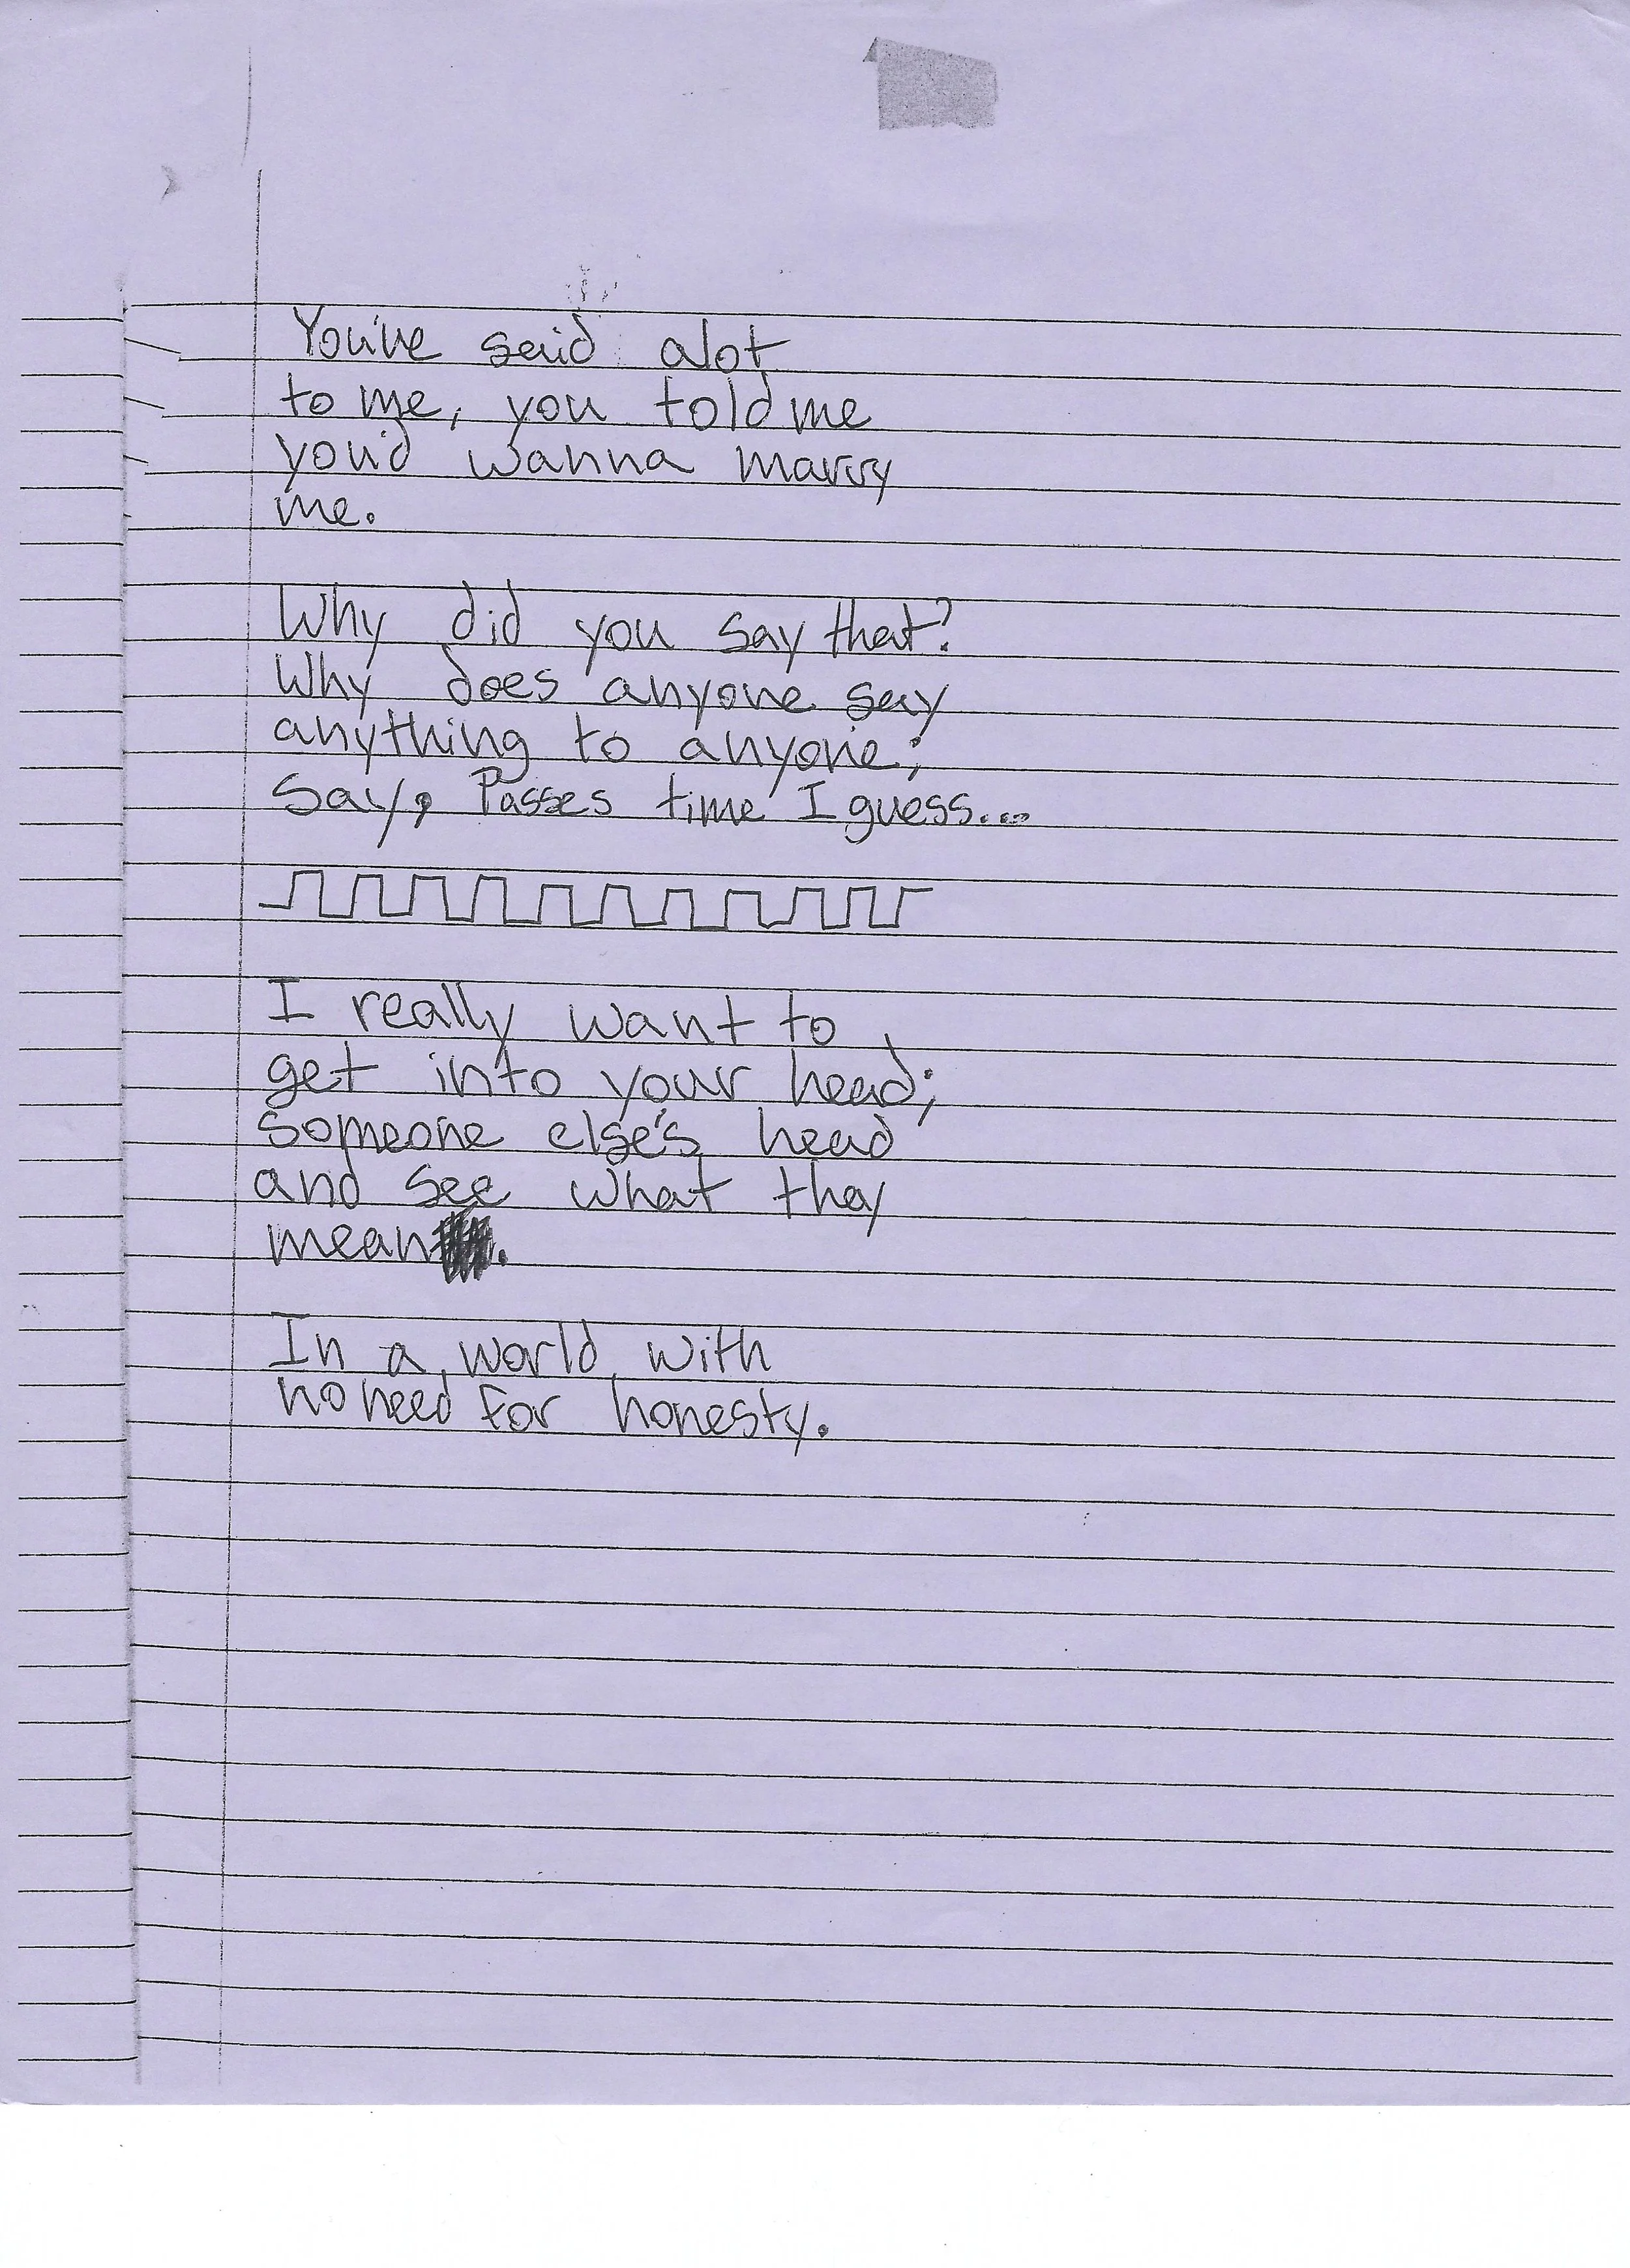 You've said alot
to me, you told me
you'd wanna marry
me.
Why did you say that?
Why does anyone say
anything to anyone;
Say, Passes time I guess...
I really want to
get into your head;
someone else's head
and see what they
mean.
In a world with
no need for honesty.